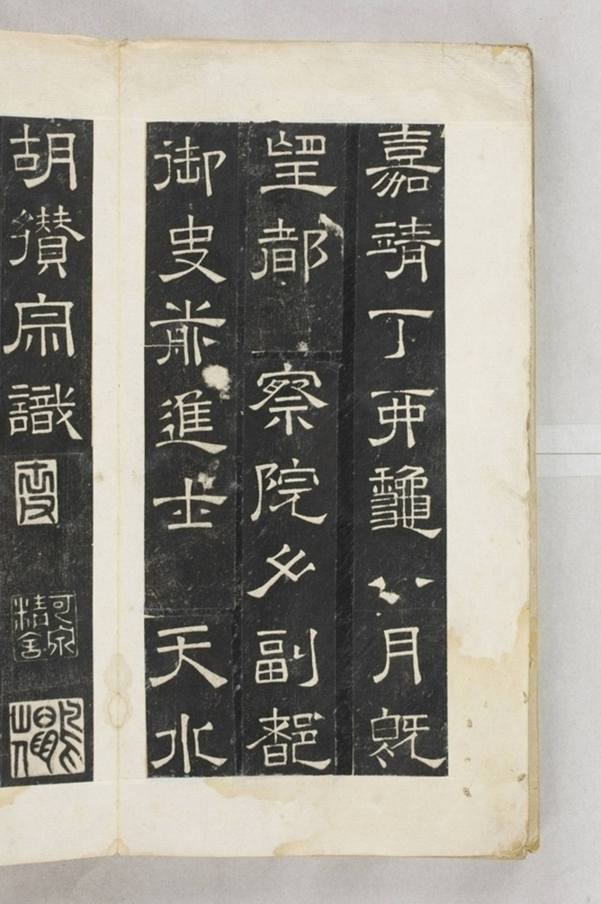 嘉靖丁丣龝八月既
望都察院副都
御史前進士天水
胡纘宗識
可泉
精舍